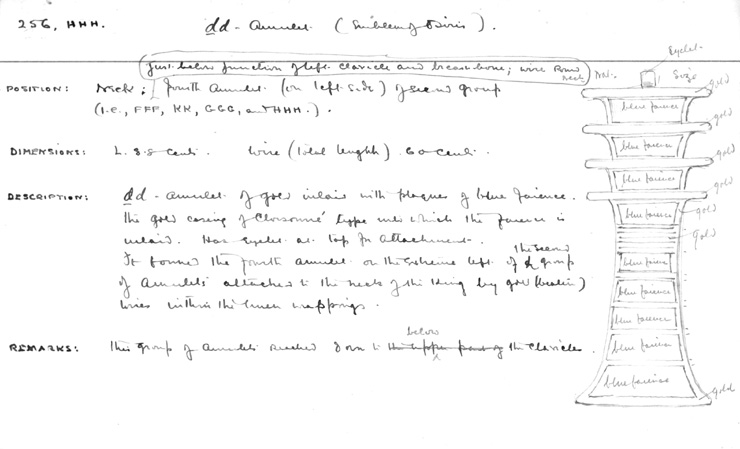 256, HHH.
dd - Amulet (Emblem of Osiris).
Just below junction of left clavicle and breast-bone; wire round neck
POSITION: Neck; fourth Amulet (on left side) of second group
(I.E., FFF, KK, GGG, and HHH.).
DIMENSIONS: L. 8.8 cent. Wire (total length) 60 cent.
DESCRIPTION: dd - Amulet of gold inlaid with plaques of blue faience.
The gold casing of Cloisonné type into which the faience is
inlaid. Has eyelet at top for attachment.
the second
It formed the fourth amulet on the extreme left of group
of Amulets attached to the neck of the King by gold
wires within the linen wrappings.
below
REMARKS: This group of Amulets reached down to the upper part of the Clavicle.
Eyelet.
Nat. Size
gold
blue faience
gold
blue faience
gold
blue faience
gold
blue faience
gold
gold
blue faience
blue faience
blue faience
blue faience
blue faience
gold